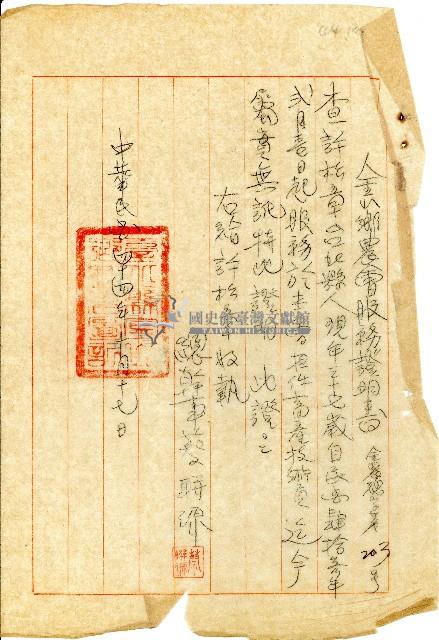 金山鄉農會服務證明書 203號
查許松章台北縣人現年三十七歲自民國肆拾年
貳月壹日起服務於本會担任畜產技術員迄今
屬實無訛特此證明 此證
右給許松章收執
總幹事 聯
中華民國四十四年 月十七日
國史館臺灣文獻館
TAIWAN HISTORICA